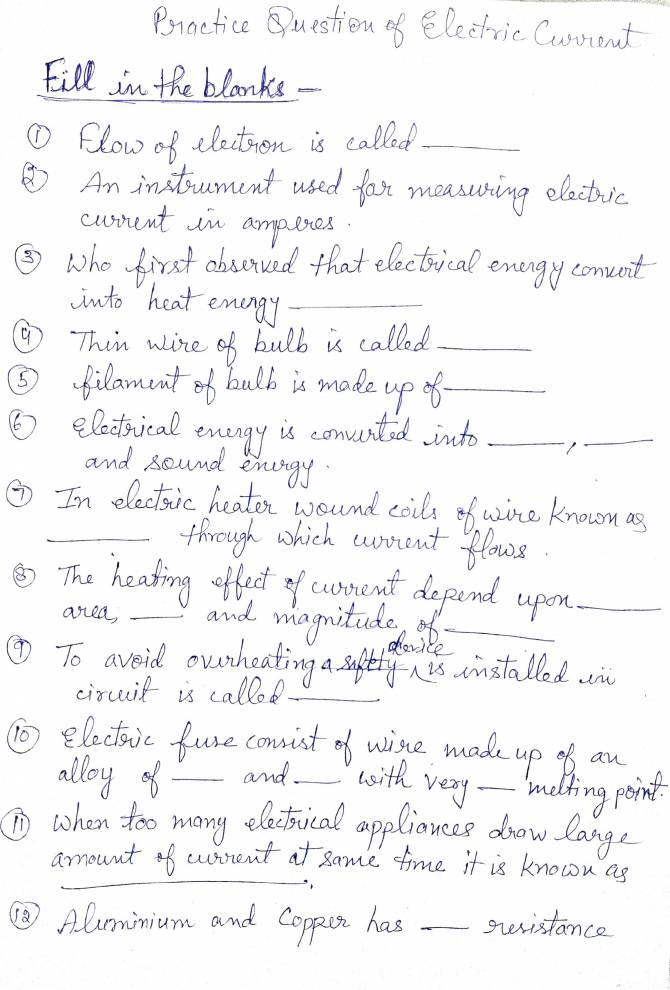 Practice Question of Electric Current
Fill in the blanks -
① Flow of electron is called ______
② An instrument used for measuring electric
current in amperes.
③ Who first observed that electrical energy convert
into heat energy ______
④ Thin wire of bulb is called ______
⑤ filament of bulb is made up of ______
⑥ Electrical energy is converted into ______, ______
and sound energy.
⑦ In electric heater wound coils of wire known as
______ through which current flows.
⑧ The heating effect of current depend upon ______
area, ___ and magnitude of ______
⑨ To avoid overheating a safety device is installed in
circuit is called ______
⑩ Electric fuse consist of wire made up of an
alloy of ___ and ___ with very ___ melting point.
⑪ When too many electrical appliances draw large
amount of current at same time it is known as
______.
⑫ Aluminium and Copper has ___ resistance